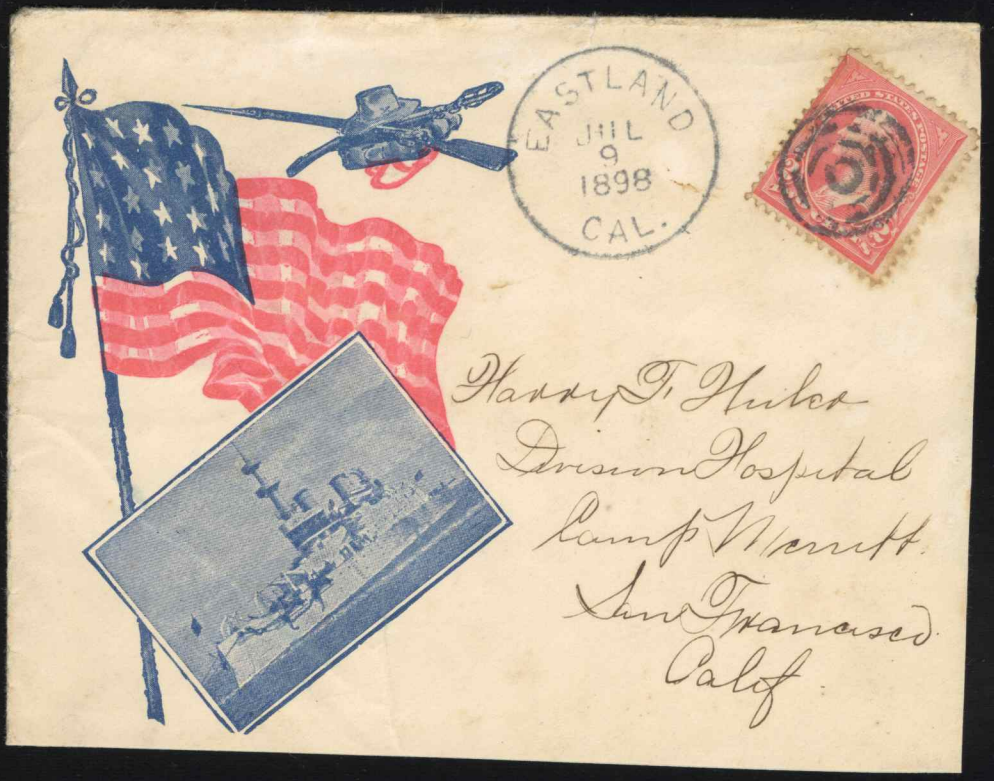 EASTLAND
JUL
9
1898
CAL.
UNITED STATES POSTAGE
Harry F Huber
Division Hospital
Camp Merritt.
San Francisco
Calif